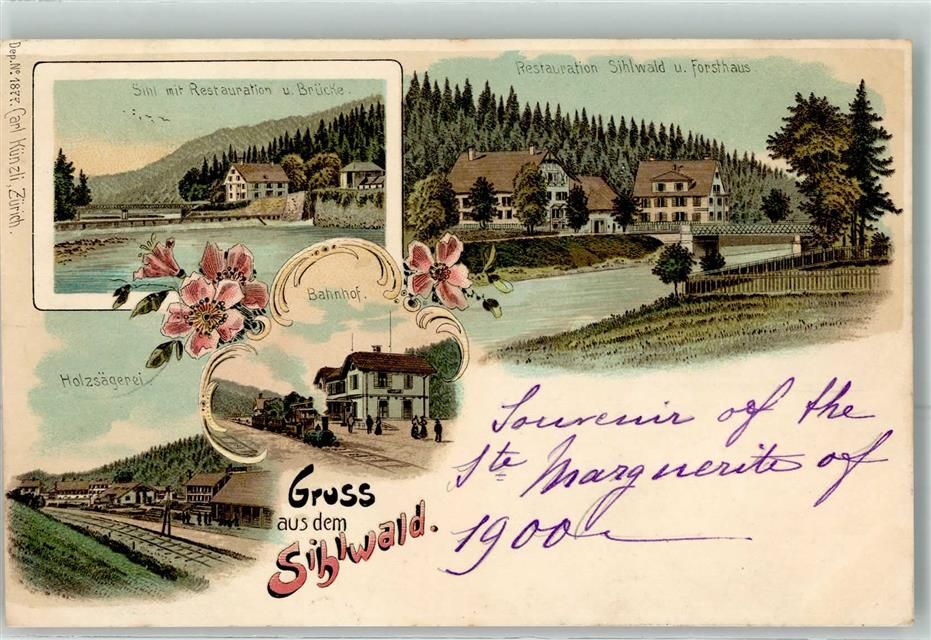 Dep. No. 1877. Carl Künzli, Zürich.
Sihl mit Restauration u. Brücke.
Restauration Sihlwald u. Forsthaus.
Bahnhof.
Holzsägerei.
Gruss
aus dem
Sihlwald.
Souvenir of the
Ste Marguerite of
1900